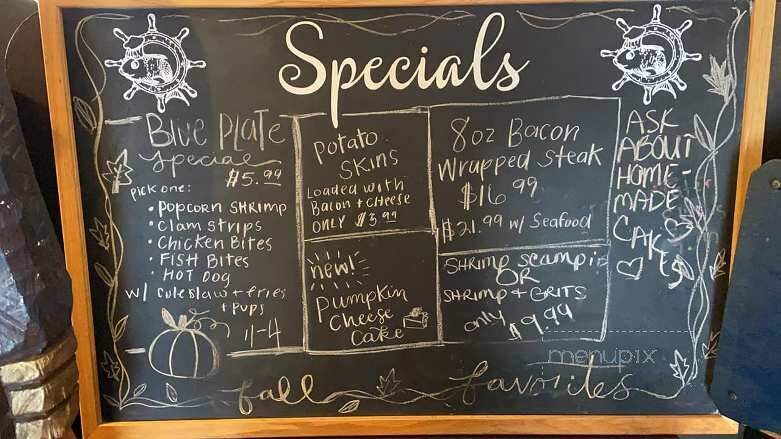 Specials
BLUE PLATE
Special
$5.99
PICK ONE:
• POPCORN SHRIMP
• Clam STRIPS
• CHICKEN BITES
• FISH BITES
• HOT DOG
W/ Coleslaw + fries
+ PUPS
11-4
POTATO
SKINS
LOADED WITH
BACON + CHEESE
ONLY $3.99
new!
Pumpkin
Cheese
Cake
8oz Bacon
Wrapped Steak
$16.99
$21.99 w/ Seafood
SHRIMP SCAMPI
OR
SHRIMP + GRITS
only $9.99
ASK
ABOUT
HOME-
MADE
CAKES
fall favorites
menupix